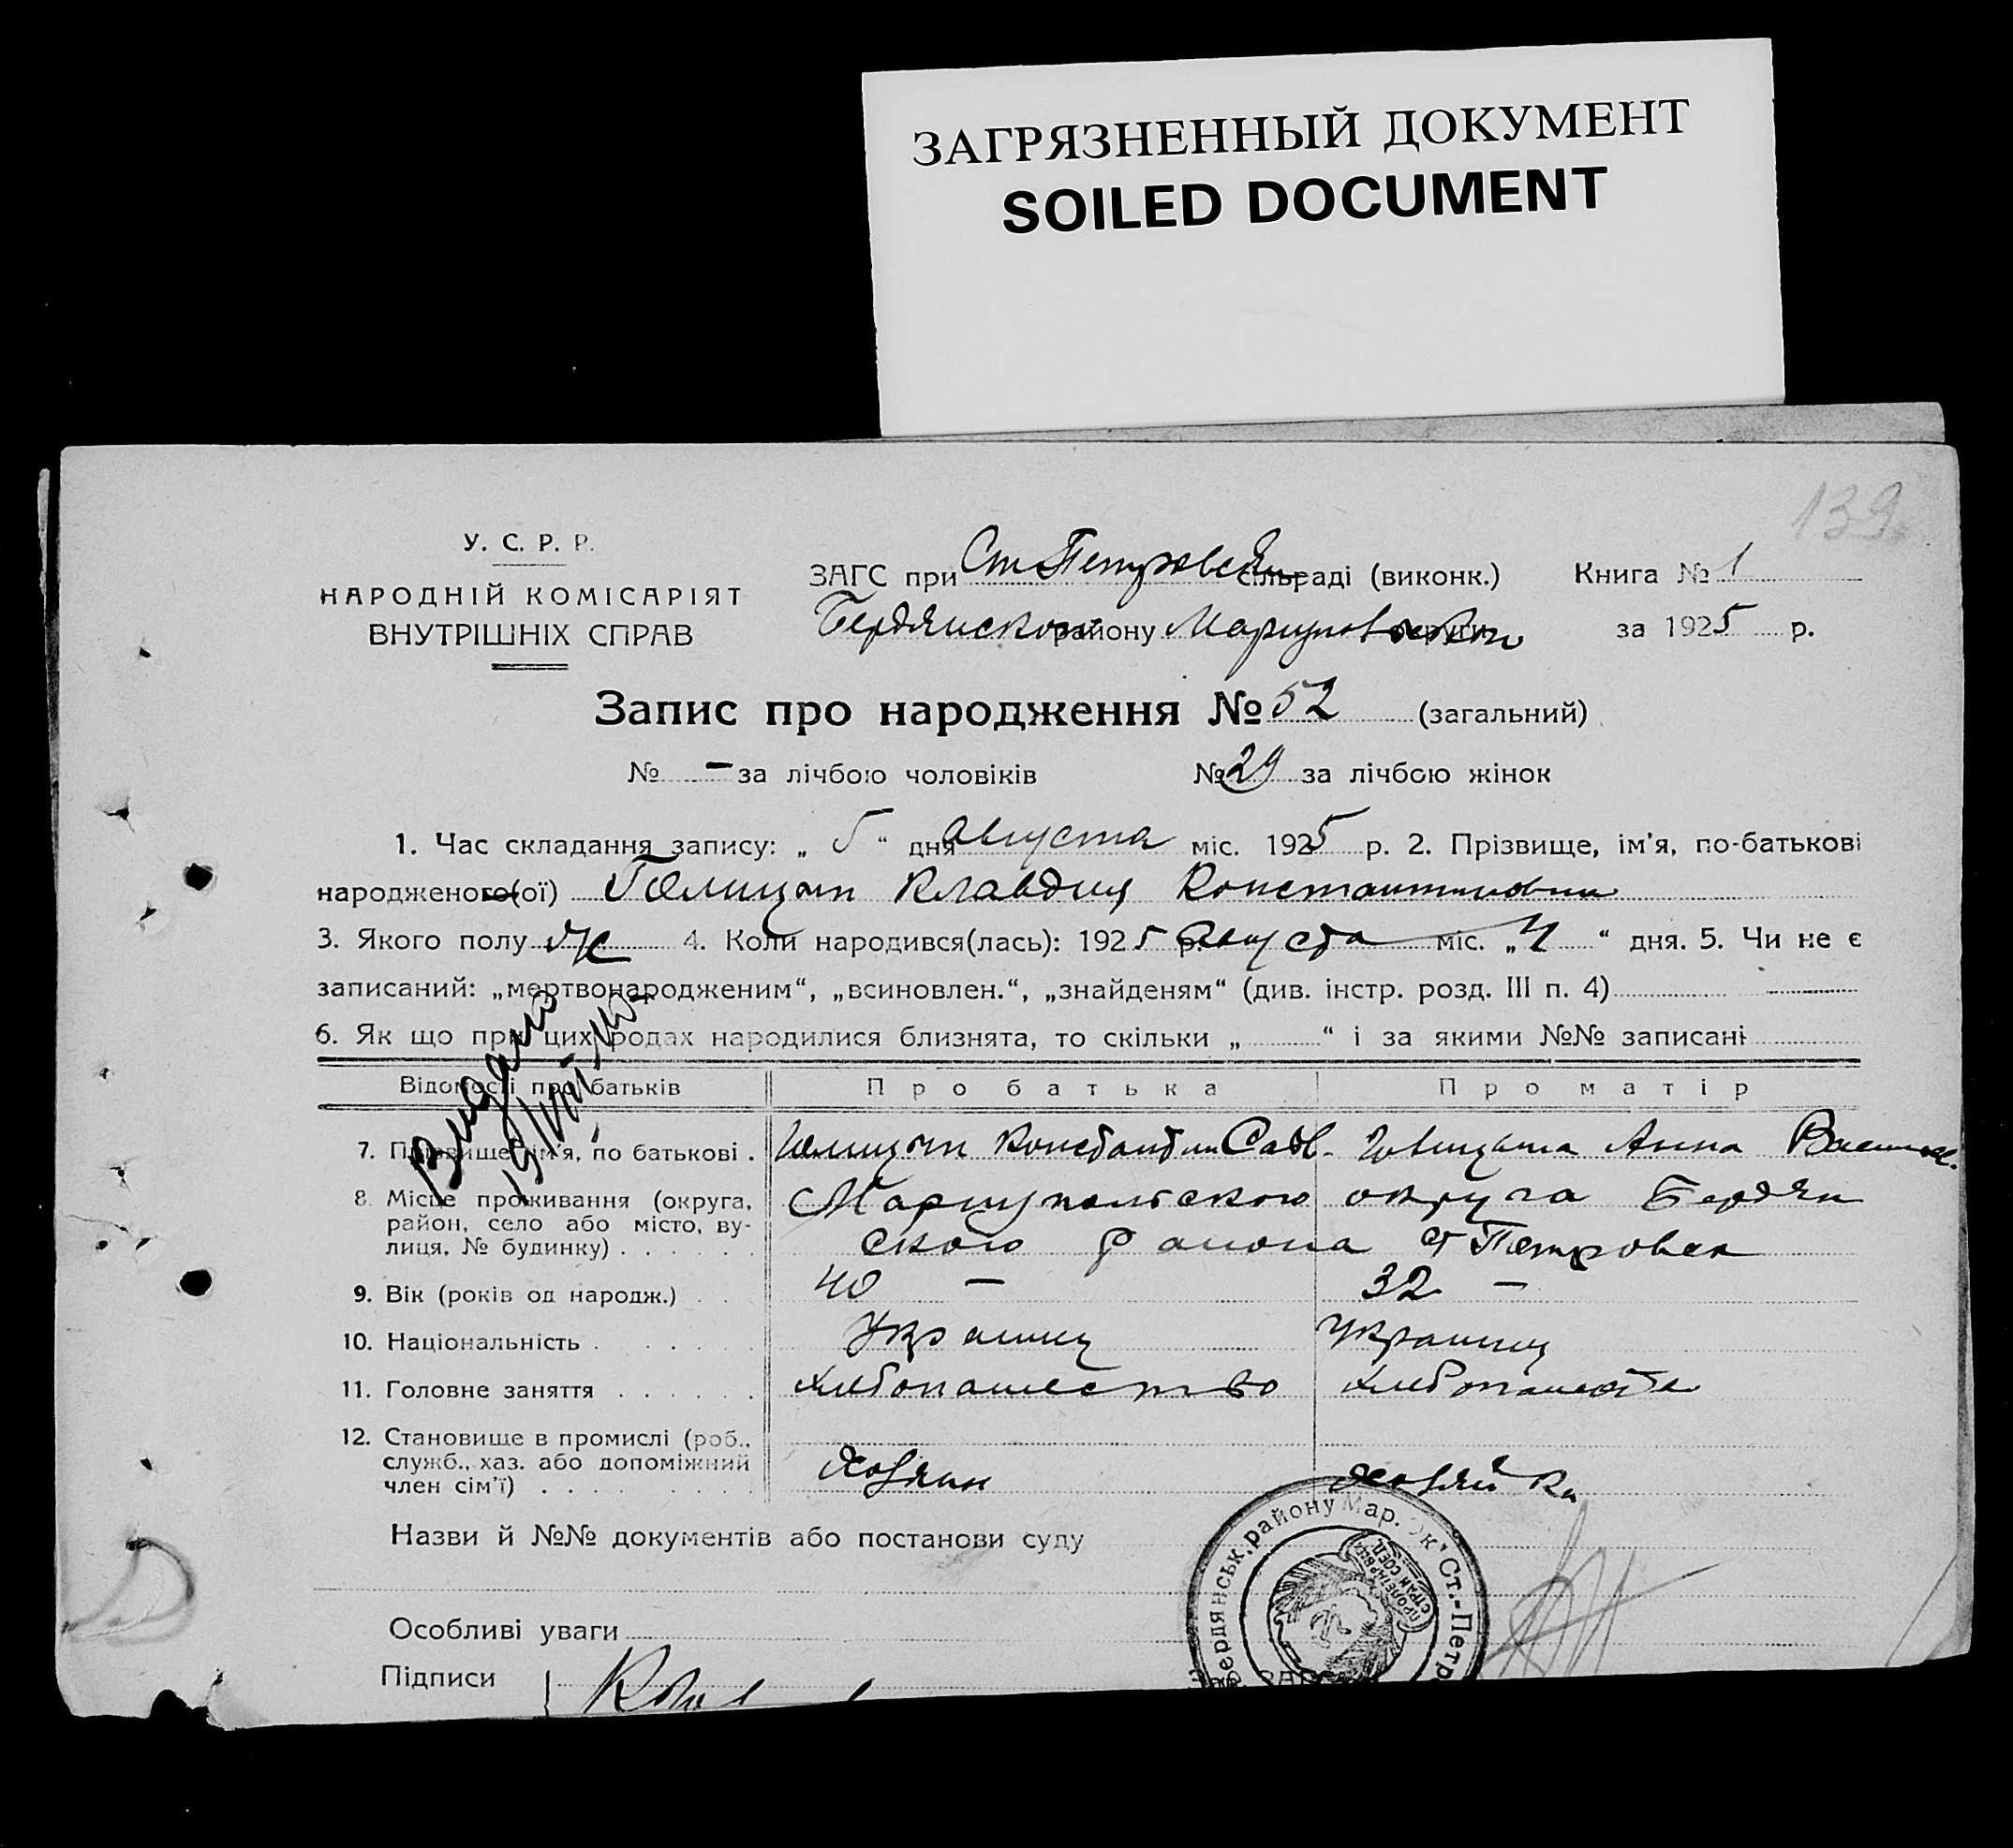 ЗАГРЯЗНЕННЫЙ ДОКУМЕНТ
SOILED DOCUMENT
139
У. С. Р. Р.
НАРОДНІЙ КОМІСАРІЯТ
ВНУТРІШНІХ СПРАВ
ЗАГС при Ст Петровской сільраді (виконк.)
Книга № 1
Бердянского району Мариуповской округи
за 1925 р.
Запис про народження № 52 (загальний)
№ — за лічбою чоловіків № 29 за лічбою жінок
1. Час складання запису: „ 5 “ дня Августа міс. 1925 р. 2. Прізвище, ім'я, по-батькові
народженого(ої) Клавдия Константиновна
3. Якого полу ж 4. Коли народився(лась): 1925 р. Августа міс. „ 4 “ дня. 5. Чи не є
записаний: „мертвонародженим“, „всиновлен.“, „знайденям“ (див. інстр. розд. III п. 4)
6. Як що при цих родах народилися близнята, то скільки „ “ і за якими №№ записані
Видано
Відомості про батьків Про батька Про матір
7. Прізвище, ім'я, по батькові . Константин Савв. Анна Васил.
8 Місце проживання (округа, район, село або місто, вулиця, № будинку) . . . . . .
Мариупольского округа Бердян
ского района ст Петровка
9. Вік (років од народж.) . . 40 — 32 —
10. Національність . . . . . . Украинц Украинц
11. Головне заняття . . . . . . хлебопашество хлебопашество
12. Становище в промислі (роб., служб., хаз. або допоміжний член сім'ї) . . . . . . . .
Хозяин Хозяйка
Назви й №№ документів або постанови суду
Особливі уваги
Підписи
Бердянськ. району Мар. Ок. Ст.-Петр
ПРОЛЕТАРІ ВСІХ